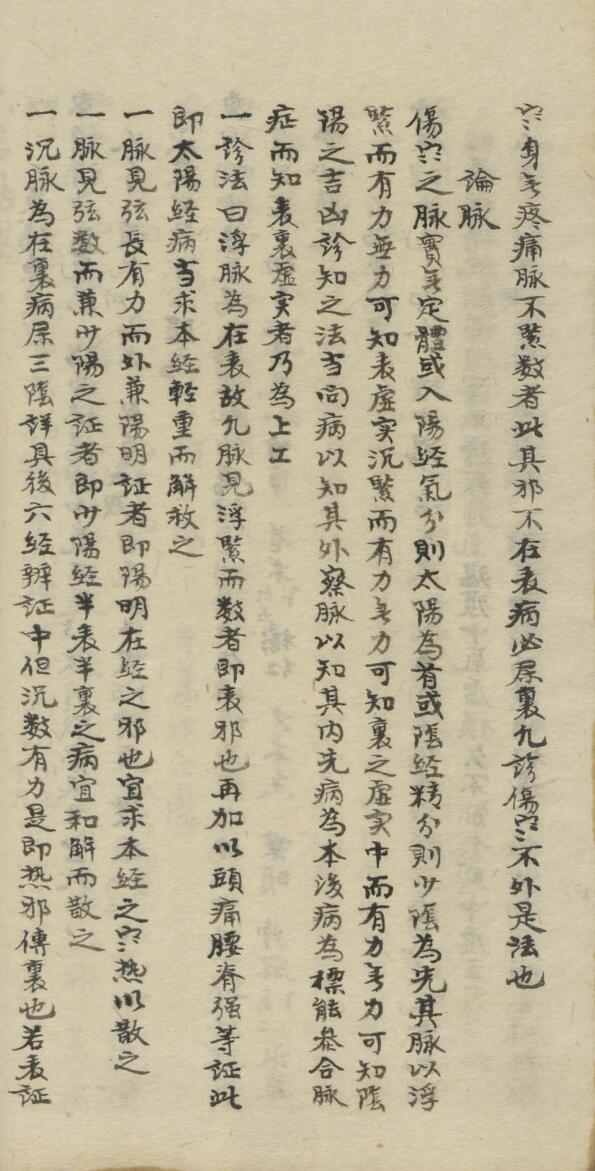 寒身無疼痛脈不緊数者此其邪不在表病必屬裏凡診傷寒不外是法也
論脈
傷寒之脈實無定體或入陽經氣分則太陽為首或陰經精分則少陰為先其脈以浮
緊而有力無力可知表虛实沉緊而有力無力可知裏之虛实中而有力無力可知陰
陽之吉凶診知之法当问病以知其外察脈以知其内先病為本後病為標能参合脈
症而知表裏虛实者乃為上工
一診法曰浮脈為在表故凡脈見浮緊而数者即表邪也再加以頭痛腰脊强等証此
即太陽經病当求本經輕重而解救之
一脈見弦長有力而外兼陽明証者即陽明在經之邪也宜求本經之寒热以散之
一脈見弦数而兼少陽之証者即少陽經半表半裏之病宜和解而散之
一沉脈為在裏病屬三陰詳具後六經辨証中但沉数有力是即热邪傳裏也若表証